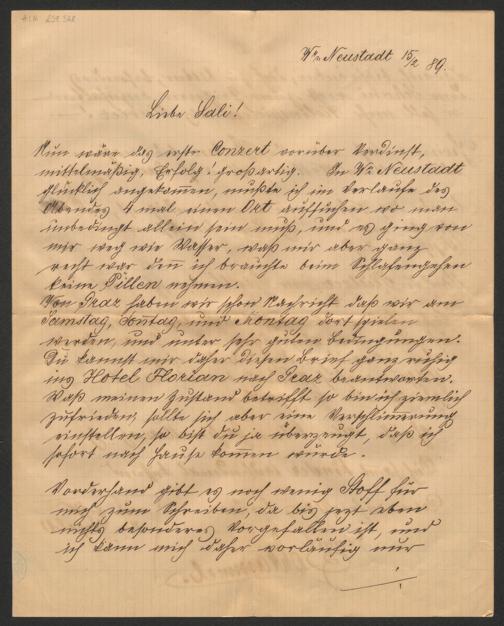 Wr. Neustadt 15/2 89.
Liebe Sali!
Nun wäre das erste Conzert vorüber Verdinst,
mittelmäßig, Erfolg: großartig. In Wr Neustadt
glücklich angekommen, mußte ich im Verlaufe des
Abendes 4 mal einen Ort aufsuchen wo man
unbedingt allein sein muß, und es ging von
mir weg wie Wasser, was mir aber ganz
recht war den̄ ich brauchte beim Schlafengehen
keine Pillen nehmen.
Von Graz haben wir schon Nachricht daß wir am
Samstag, Son̄tag, und Montag dort spielen
werden, und unter sehr guten Bedingungen.
Du kannst mir daher diesen Brief ganz ruhig
ins Hotel Florian nach Graz beantworten.
Was meinen Zustand betrifft so bin ich ziemlich
zufrieden, sollte sich aber eine Verschlimerung
einstellen, so bist du ja überzeugt, daß ich
sofort nach Hause komen würde.
Vorderhand gibt es noch wenig Stoff für
mich zum Schreiben, da bis jezt eben
nichts besonderes vorgefallen ist, und
ich kann mich daher vorläufig nur